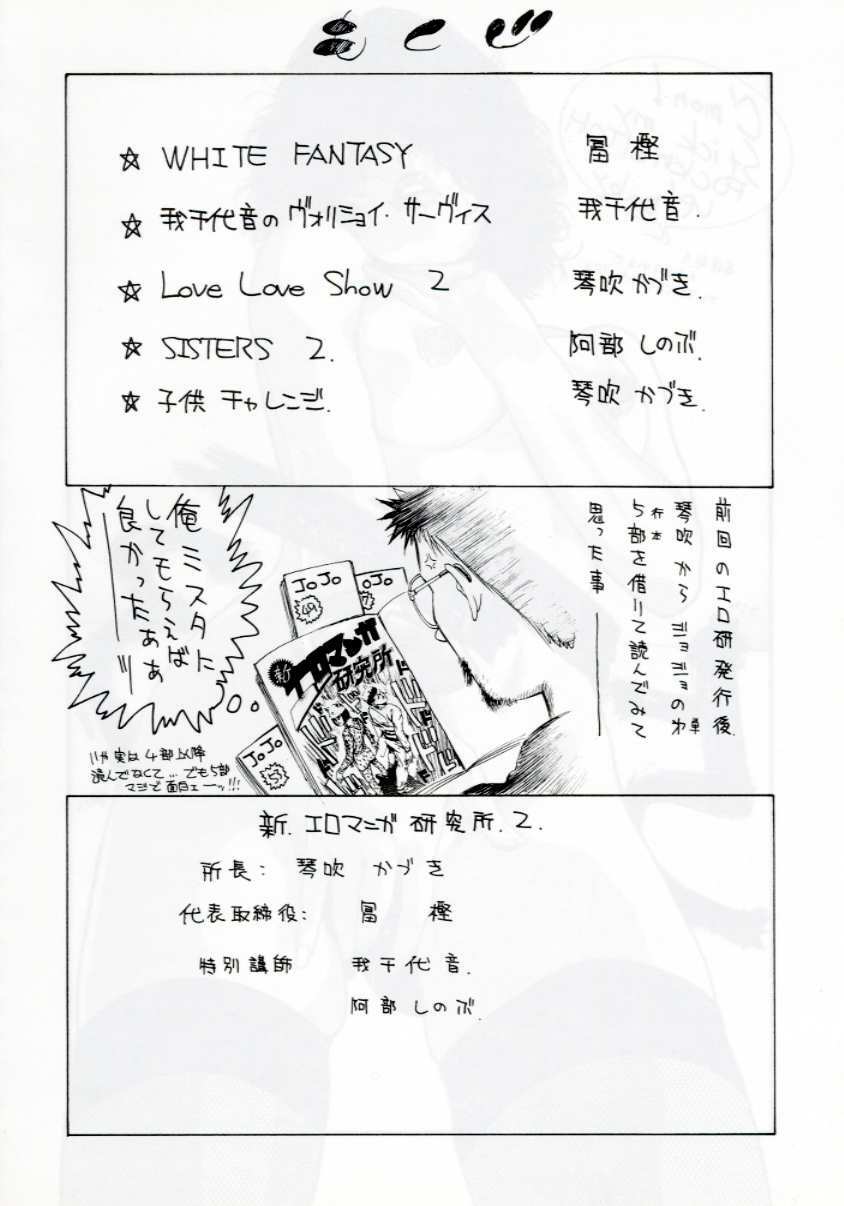 もくじ
☆ WHITE FANTASY 冨樫
☆ 我千代音の ヴォリショイ・サーヴィス 我千代音.
☆ Love Love Show 2 琴吹かづき.
☆ SISTERS 2. 阿部しのぶ.
☆ 子供チャレンジ. 琴吹かづき.
前回のエロ研発行後
琴吹からジョジョの単
行本
5部を借りて読んでみて
思った事
俺ミスタに
してもらえば
良かったぁぁ
ーッ
JoJo
49
JoJo
新
エロマンガ
研究所
JoJo
いや実は4部以降
読んでなくて…でも5部
マジで面白ェーッ!!!
新.エロマンガ研究所.2.
所長: 琴吹 かづき
代表取締役: 冨 樫
特別講師 我千代音.
阿部しのぶ.